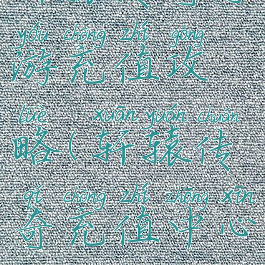 yóu chōng zhí gōng
游充值攻
lüè xuān yuán chuán
略(轩辕传
qí chōng zhí zhōng xīn
奇充值中心